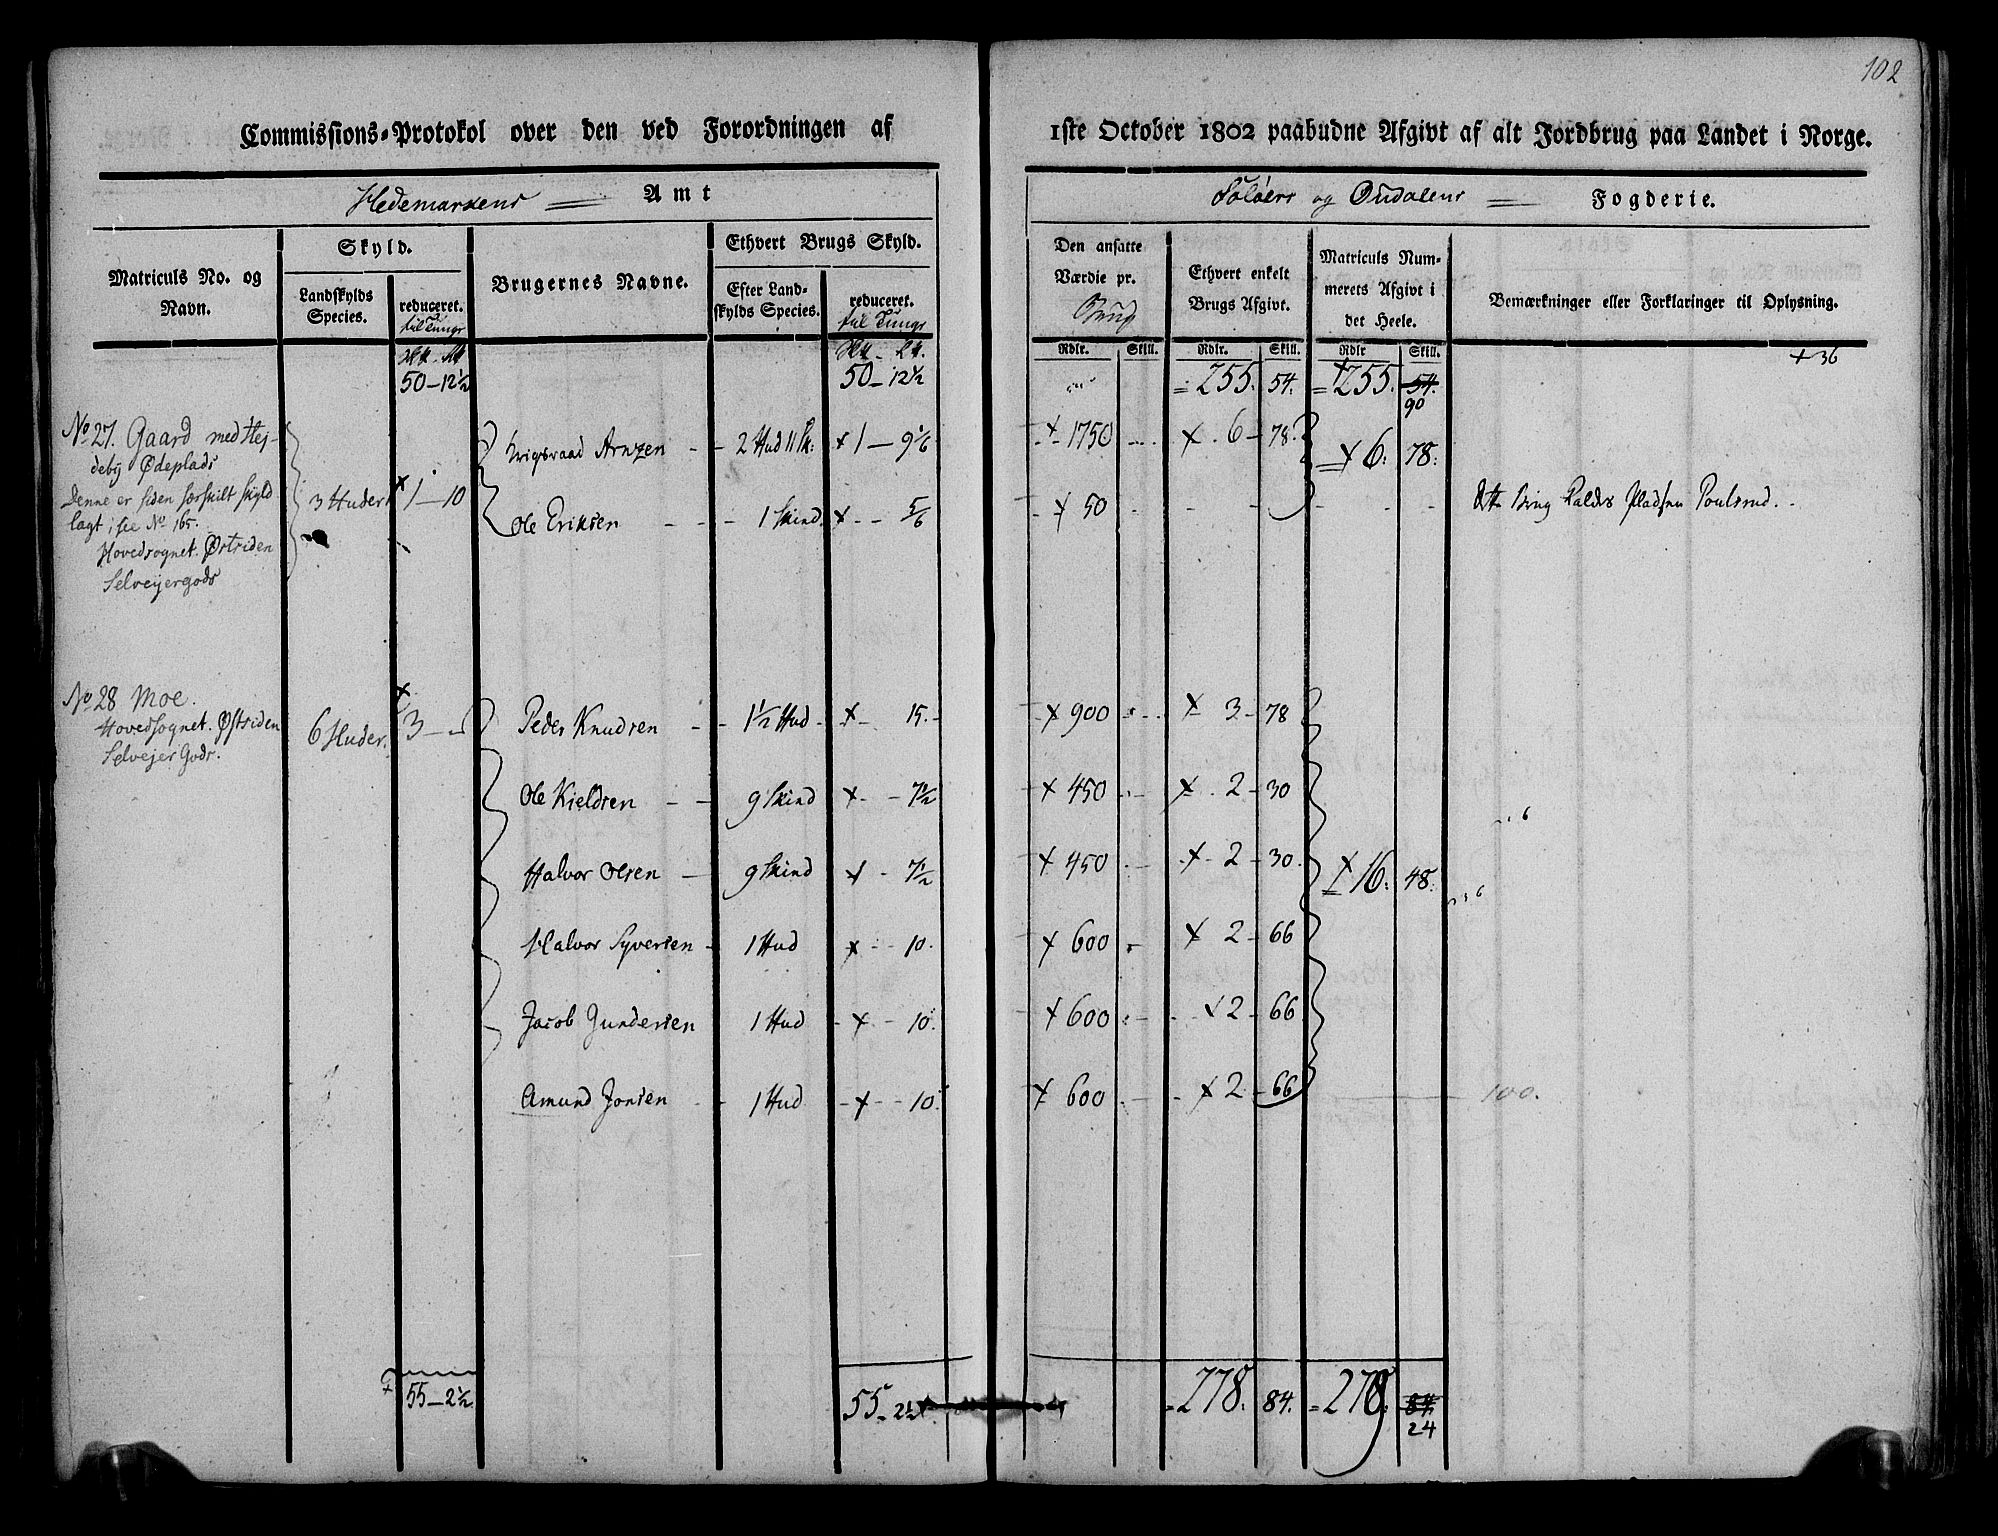 102
Commissions-Protokol over den ved Forordningen af 1ste October 1802 paabudne Afgivt af alt Jordbrug paa Landet i Norge.
Hedemarkens Amt
Soløers og Oudalens Fogderie.
Matriculs No. og Navn.
Skyld.
Landskylds Species.
reduceret. til Tunge
Brugernes Navne.
Ethvert Brugs Skyld.
Efter Landskylds Species.
reduceret. til Tunge
Den ansatte Værdie pr. Brug
Ethvert enkelt Brugs Afgivt.
Matriculs Nummerets Afgivt i det Heele.
Bemærkninger eller Forklaringer til Oplysning.
Rdlr. Skill. Rdlr. Skill. Rdlr Skill.
50-12½ 50-12½ 255. 54. 255. 54. 90 +36
No 27. Gaard med Hej-
deby Ødeplads
Denne er siden særskilt skyld
lagt, see No 165.
Hovedsognet. Østsiden
Selveyergods
3 Huder 1-10
Arnzen 2 Hud 11 Sk: 1-9 1/6 1750 6-78. 6: 78:
Ole Eriksen 1 Skind 5/6 50 dette Brug kaldes Pladsen Poulsrud.
No 28 Moe.
Hovedsognet. Østsiden
Selvejer Gods.
6 Huder. 3
Peder Knudsen 1½ Hud 15. 900 3-78
Ole Kieldsen 9 Skind 7½ 450 2-30
Halvor Olsen 9 Skind 7½ 450 2-30. 16. 48.
Halvor Syversen 1 Hud 10. 600 2-66
Jacob Gundersen 1 Hud 10. 600 2-66
Amund Jonsen 1 Hud 10. 600 2-66 100.
55-2½ 55-2½ 278. 84. 278. 84.
279 24